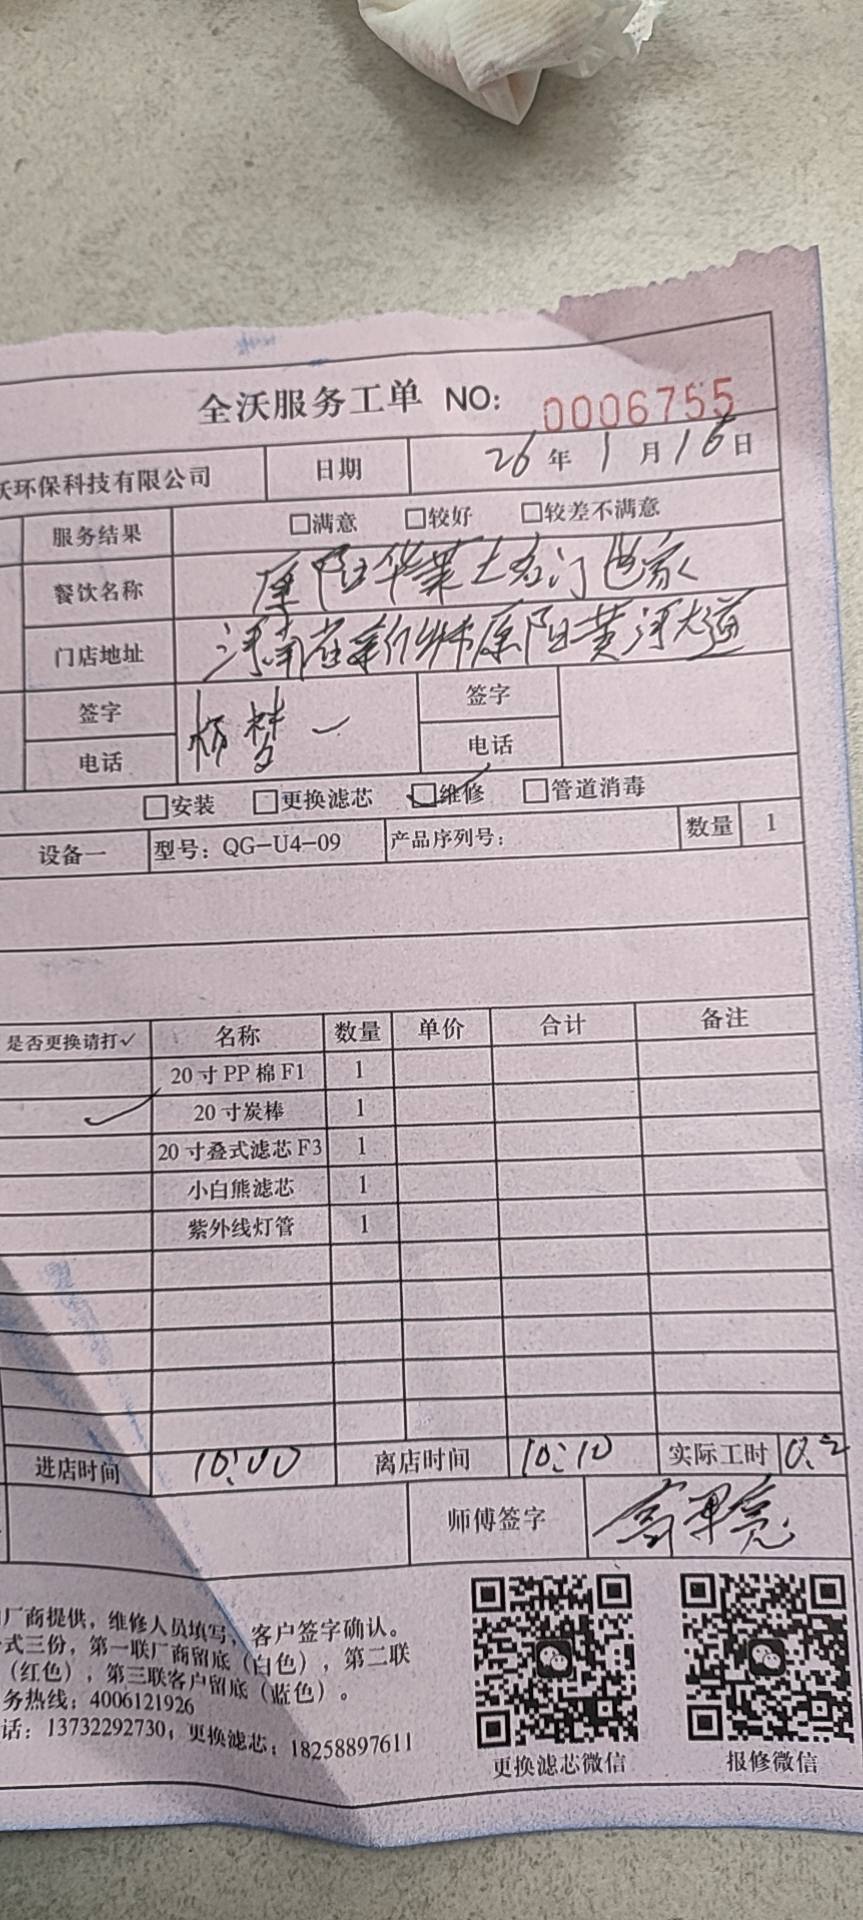 全沃服务工单 NO: 0006755
沃环保科技有限公司 日期 26年1月16日
服务结果 □满意 □较好 □较差不满意
餐饮名称 原阳华莱士名门世家
门店地址 河南省新乡市原阳黄河大道
签字 杨梦一 签字
电话 电话
□安装 □更换滤芯 □维修 □管道消毒
设备一 型号：QG-U4-09 产品序列号： 数量 1
是否更换请打✓ 名称 数量 单价 合计 备注
20寸PP棉F1 1
✓ 20寸炭棒 1
20寸叠式滤芯F3 1
小白熊滤芯 1
紫外线灯管 1
进店时间 10:00 离店时间 10:10 实际工时 0.2
师傅签字
厂商提供，维修人员填写，客户签字确认。
式三份，第一联厂商留底（白色），第二联
（红色），第三联客户留底（蓝色）。
务热线：4006121926
话：13732292730；更换滤芯：18258897611
更换滤芯微信 报修微信